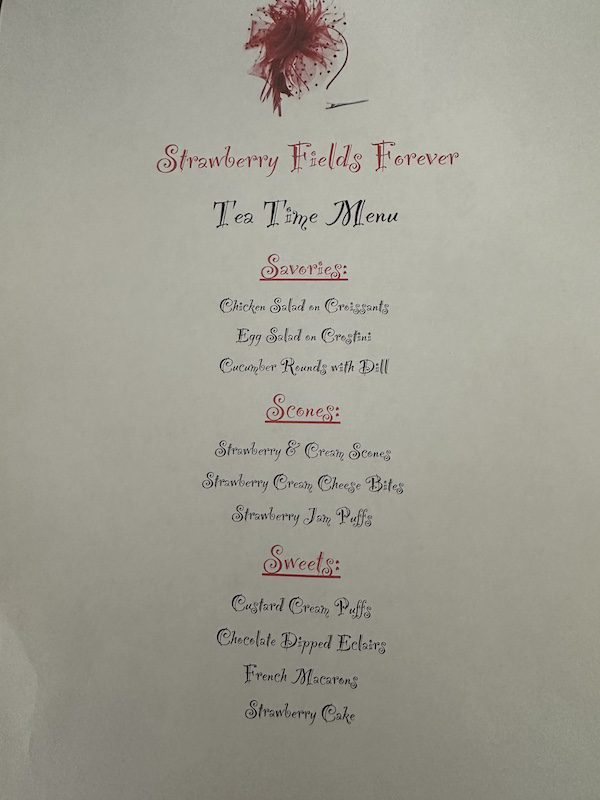 Strawberry Fields Forever
Tea Time Menu
Savories:
Chicken Salad on Croissants
Egg Salad on Crostini
Cucumber Rounds with Dill
Scones:
Strawberry & Cream Scones
Strawberry Cream Cheese Bites
Strawberry Jam Puffs
Sweets:
Custard Cream Puffs
Chocolate Dipped Eclairs
French Macarons
Strawberry Cake